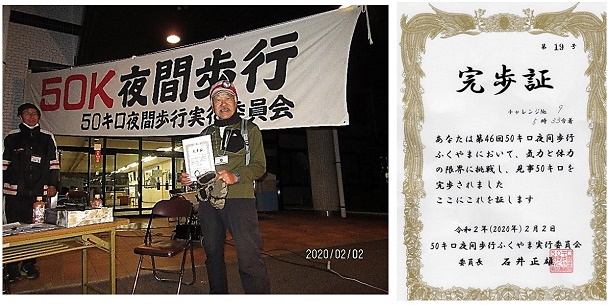 50K夜間歩行
50キロ夜間歩行実行委員会
完歩証
2020/02/02
第 19 号
完歩証
チャレンジ№ 9
5 時 33台着
あなたは第46回50キロ夜间歩行
ふくやまにおいて、気力と体力
の限界に挑戦し、見事50キロを
完歩されました
ここにこれを証します
令和2年(2020年)2月2日
50キロ夜间歩行ふくやま実行委員会
委員長 石井正雄